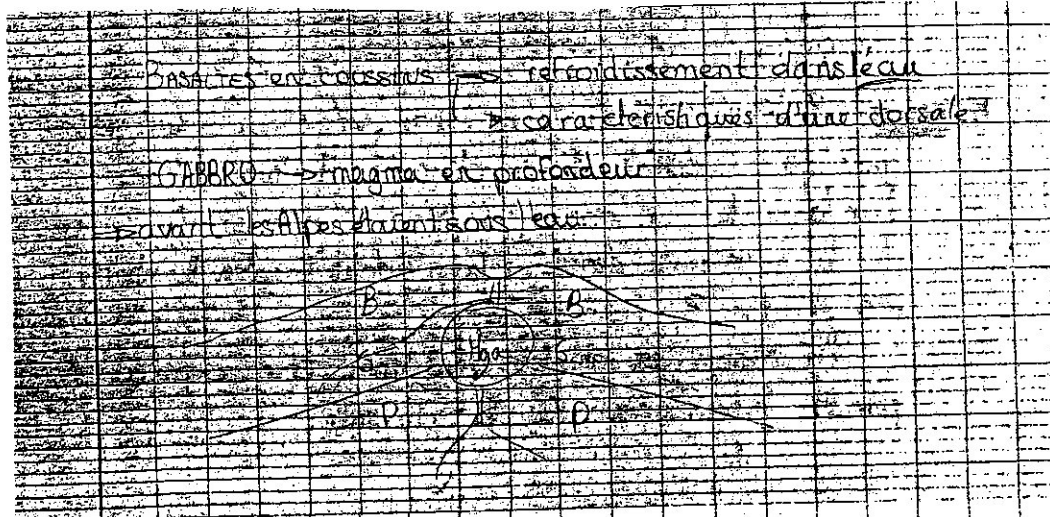 BASALTES en coussins → refroidissement dans l'eau
→ caractéristiques d'une dorsale
GABBRO → magma en profondeur
→ avant les Alpes étaient sous l'eau
B B
G G
P P